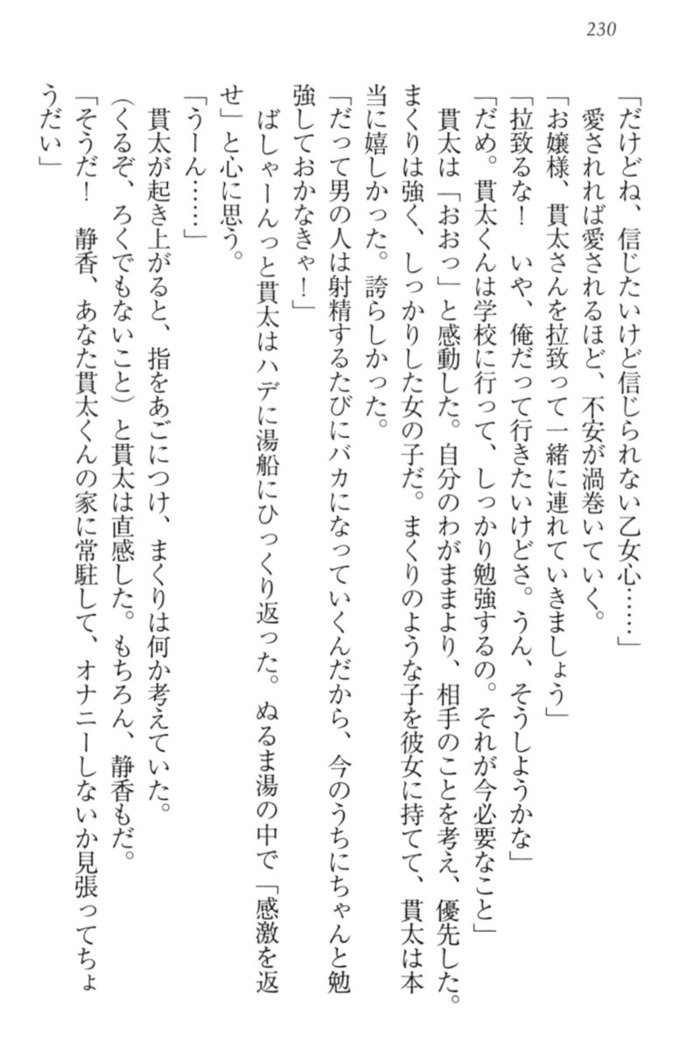 230
「だけどね、信じたいけど信じられない乙女心……」
愛されれば愛されるほど、不安が渦巻いていく。
「お嬢様、貫太さんを拉致って一緒に連れていきましょう」
「拉致るな！　いや、俺だって行きたいけどさ。うん、そうしようかな」
「だめ。貫太くんは学校に行って、しっかり勉強するの。それが今必要なこと」
貫太は「おおっ」と感動した。自分のわがままより、相手のことを考え、優先した。
まくりは強く、しっかりした女の子だ。まくりのような子を彼女に持てて、貫太は本
当に嬉しかった。誇らしかった。
「だって男の人は射精するたびにバカになっていくんだから、今のうちにちゃんと勉
強しておかなきゃ！」
ばしゃーんっと貫太はハデに湯船にひっくり返った。ぬるま湯の中で「感激を返
せ」と心に思う。
「うーん……」
貫太が起き上がると、指をあごにつけ、まくりは何か考えていた。
（くるぞ、ろくでもないこと）と貫太は直感した。もちろん、静香もだ。
「そうだ！　静香、あなた貫太くんの家に常駐して、オナニーしないか見張ってちょ
うだい」